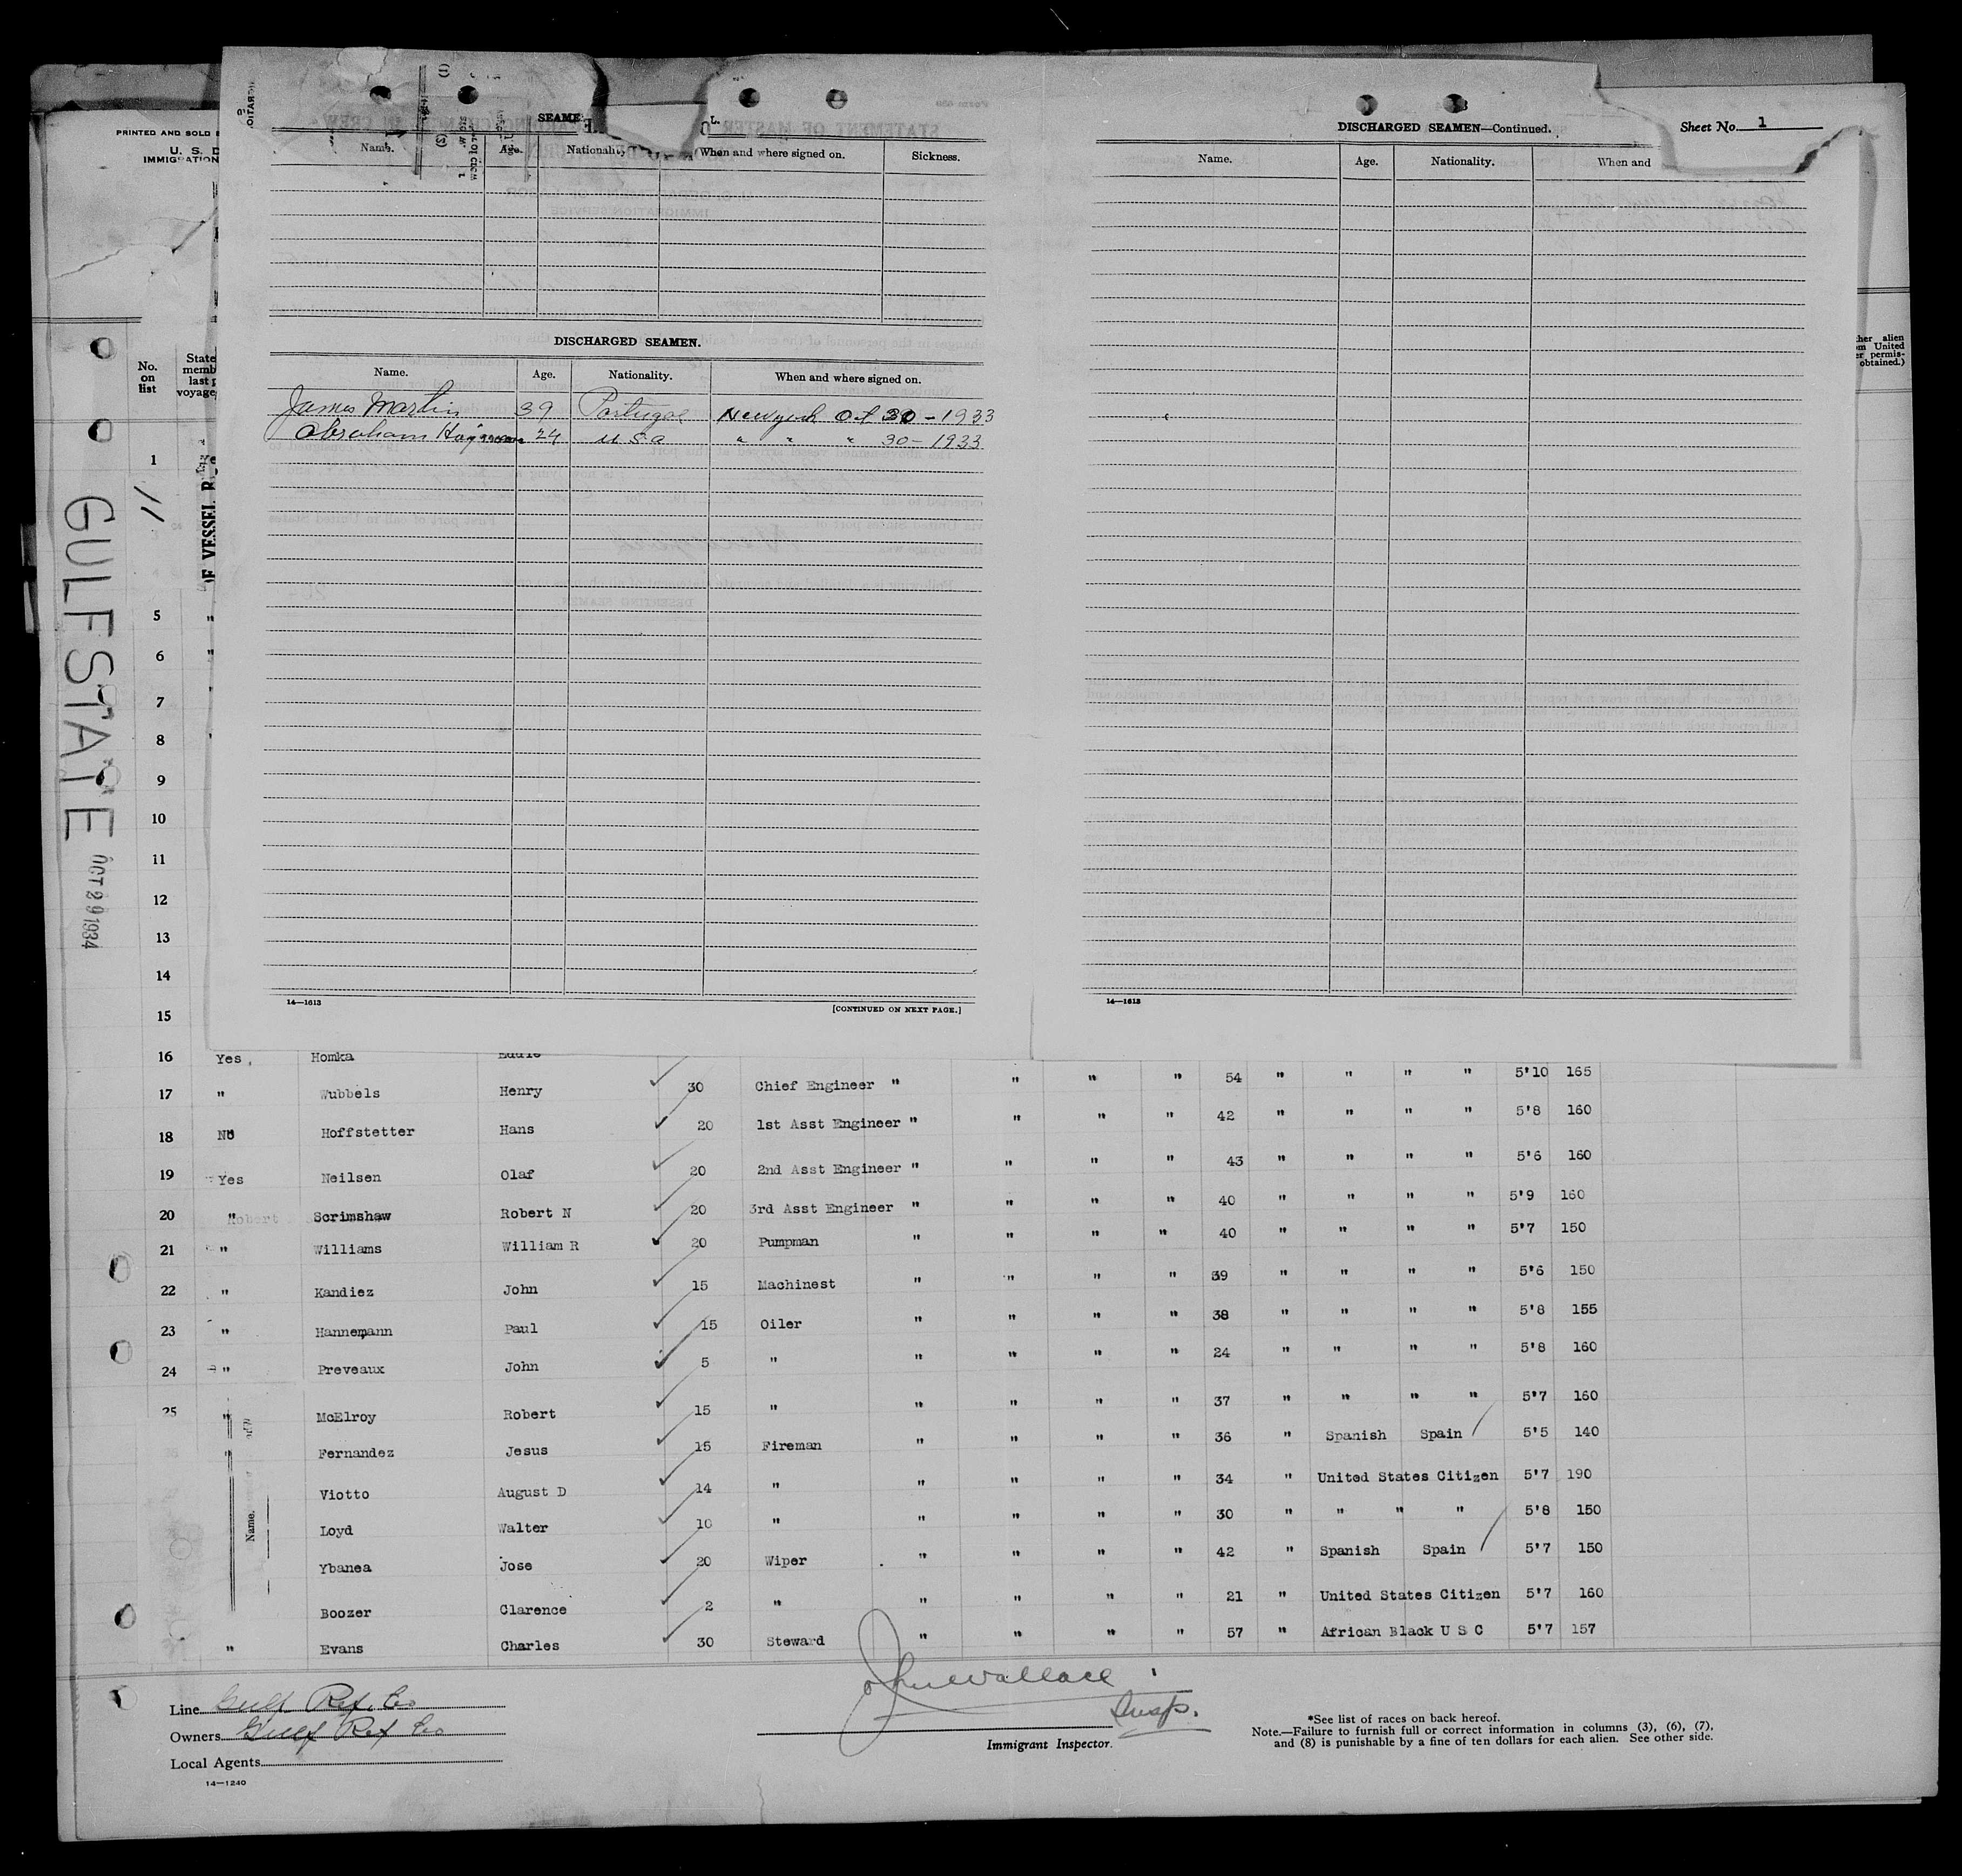 PRINTED AND SOLD
U. S. D
IMMIGRATION
No. on list
State
memb
last p
voyage
OF VESSEL
SEAME
Name. Age. Nationality When and where signed on. Sickness.
DISCHARGED SEAMEN.
Name. Age. Nationality. When and where signed on.
James Martin 39 Portugal New york Oct 30 - 1933
Abraham 24 U S a " " " 30 - 1933
14—1613 [CONTINUED ON NEXT PAGE.]
DISCHARGED SEAMEN—Continued.
Sheet No. 1
Name. Age. Nationality. When and
14—1613
her alien
om United
er permis-
obtained.)
GULFSTATE
OCT 29 1934
1
11
5 "
6 "
7 "
8 "
9
10
11
12
13
14
15
16 Yes, Homka Eddie
17 " Wubbels Henry 30 Chief Engineer " " " " 54 " " " " 5'10 165
18 No Hoffstetter Hans 20 1st Asst Engineer " " " " 42 " " " " 5'8 160
19 Yes Neilsen Olaf 20 2nd Asst Engineer " " " " 43 " " " " 5'6 160
20 " Scrimshaw Robert N 20 3rd Asst Engineer " " " " 40 " " " " 5'9 160
21 " Williams William R 20 Pumpman " " " " 40 " " " " 5'7 150
22 " Kandiez John 15 Machinest " " " " 39 " " " " 5'6 150
23 " Hannemann Paul 15 Oiler " " " " 38 " " " " 5'8 155
24 " Preveaux John 5 " " " " " 24 " " " " 5'8 160
25 " McElroy Robert 15 " " " " " 37 " " " " 5'7 160
" Fernandez Jesus 15 Fireman " " " " 36 " Spanish Spain 5'5 140
Viotto August D 14 " " " " " 34 " United States Citizen 5'7 190
Loyd Walter 10 " " " " " 30 " " " " 5'8 150
Ybanea Jose 20 Wiper " " " " 42 " Spanish Spain 5'7 150
Boozer Clarence 2 " " " " " 21 " United States Citizen 5'7 160
" Evans Charles 30 Steward " " " " 57 " African Black U S C 5'7 157
Name.
Line Gulf Ref. Co
Owners Gulf Ref Co
Local Agents
14—1240
Jno Wallace
Insp.
Immigrant Inspector.
*See list of races on back hereof.
Note.—Failure to furnish full or correct information in columns (3), (6), (7),
and (8) is punishable by a fine of ten dollars for each alien. See other side.